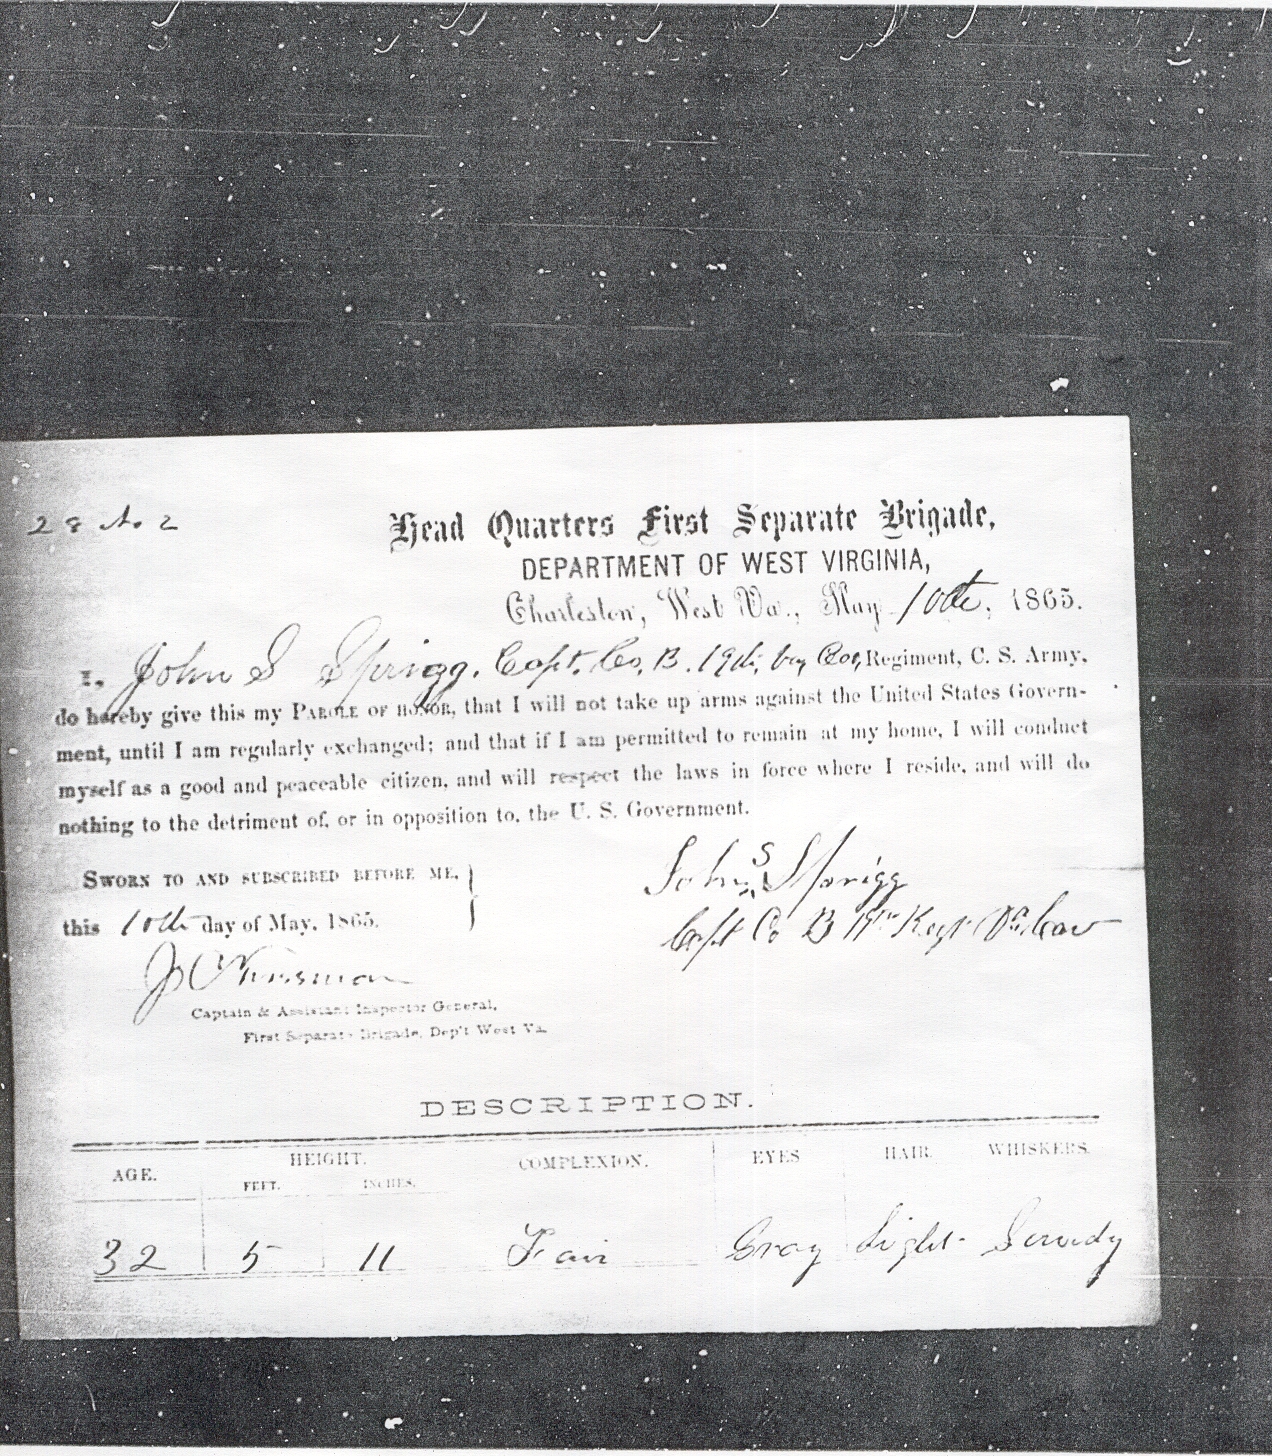 Head Quarters First Separate Brigade,
DEPARTMENT OF WEST VIRGINIA,
Charleston, West Va., May 10th, 1865.
I, John S Sprigg, Capt. Co, B. 19th, Regiment, C. S. Army,
do hereby give this my PAROLE OF HONOR, that I will not take up arms against the United States Govern-
ment, until I am regularly exchanged; and that if I am permitted to remain at my home, I will conduct
myself as a good and peaceable citizen, and will respect the laws in force where I reside, and will do
nothing to the detriment of, or in opposition to, the U. S. Government.
SWORN TO AND SUBSCRIBED BEFORE ME,
this 10th day of May, 1865.
John S Sprigg
Capt Co B 19th Regt Va Cav
Captain & Assistant Inspector General,
First Separate Brigade, Dep't West Va.
DESCRIPTION.
AGE. HEIGHT. COMPLEXION. EYES HAIR. WHISKERS.
FEET. INCHES.
32 5 11 Fair Gray Light